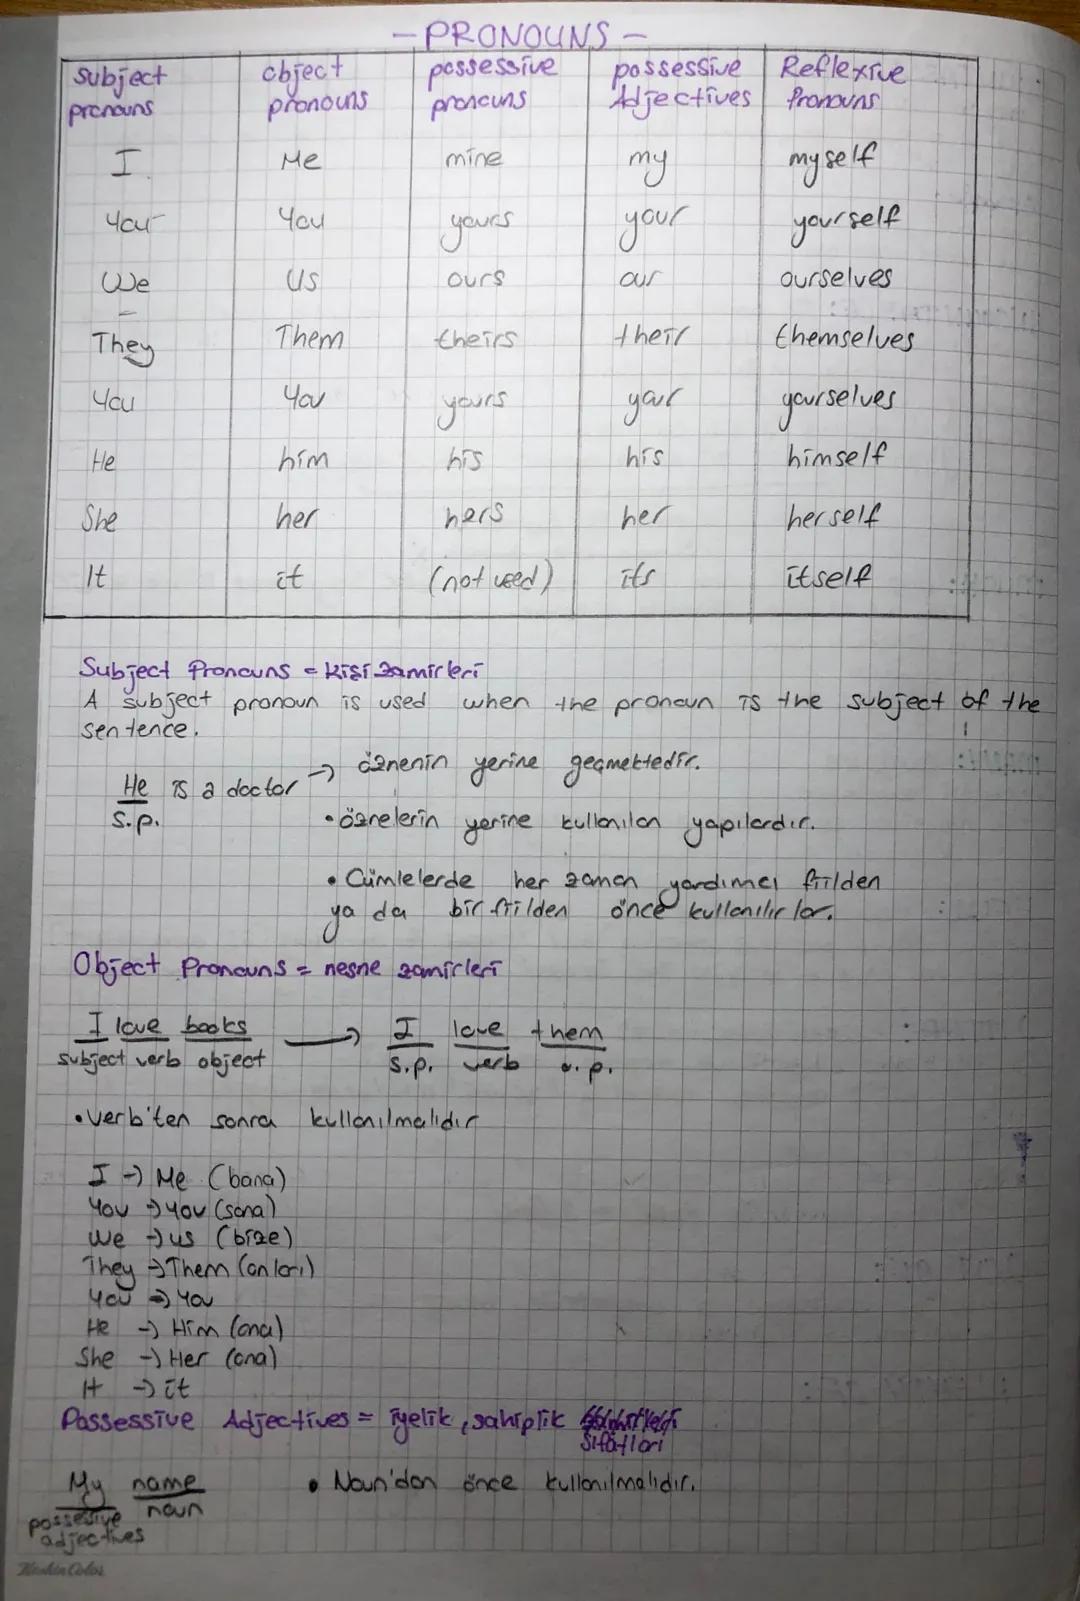 - PRONOUNS -
subject pronouns | object pronouns | possessive pronouns | possessive Adjectives | Reflexive Pronouns
I | Me | mine | my | myself
You | You | yours | your | yourself
We | us | ours | our | ourselves
They | Them | theirs | their | themselves
You | You | yours | your | yourselves
He | him | his | his | himself
She | her | hers | her | herself
It | it | (not used) | its | itself
Subject Pronouns = Kişi zamirleri
A subject pronoun is used when the pronoun is the subject of the
sentence.
He is a doctor → öznenin yerine geçmektedir.
s.p.
• öznelerin yerine kullanılan yapılardır.
• Cümlelerde her zaman yardımcı fiilden
ya da bir fiilden önce kullanılırlar.
Object Pronouns = nesne zamirleri
I love books → I love them
subject verb object s.p. verb o.p.
• Verb'ten sonra kullanılmalıdır
I → Me (bana)
You → you (sana)
We → us (bize)
They → Them (onları)
You → You
He → Him (ona)
She → Her (ona)
It → it
Possessive Adjectives = iyelik, sahiplik
Sıfatları
My name • Noun'dan önce kullanılmalıdır.
possessive noun
adjectives